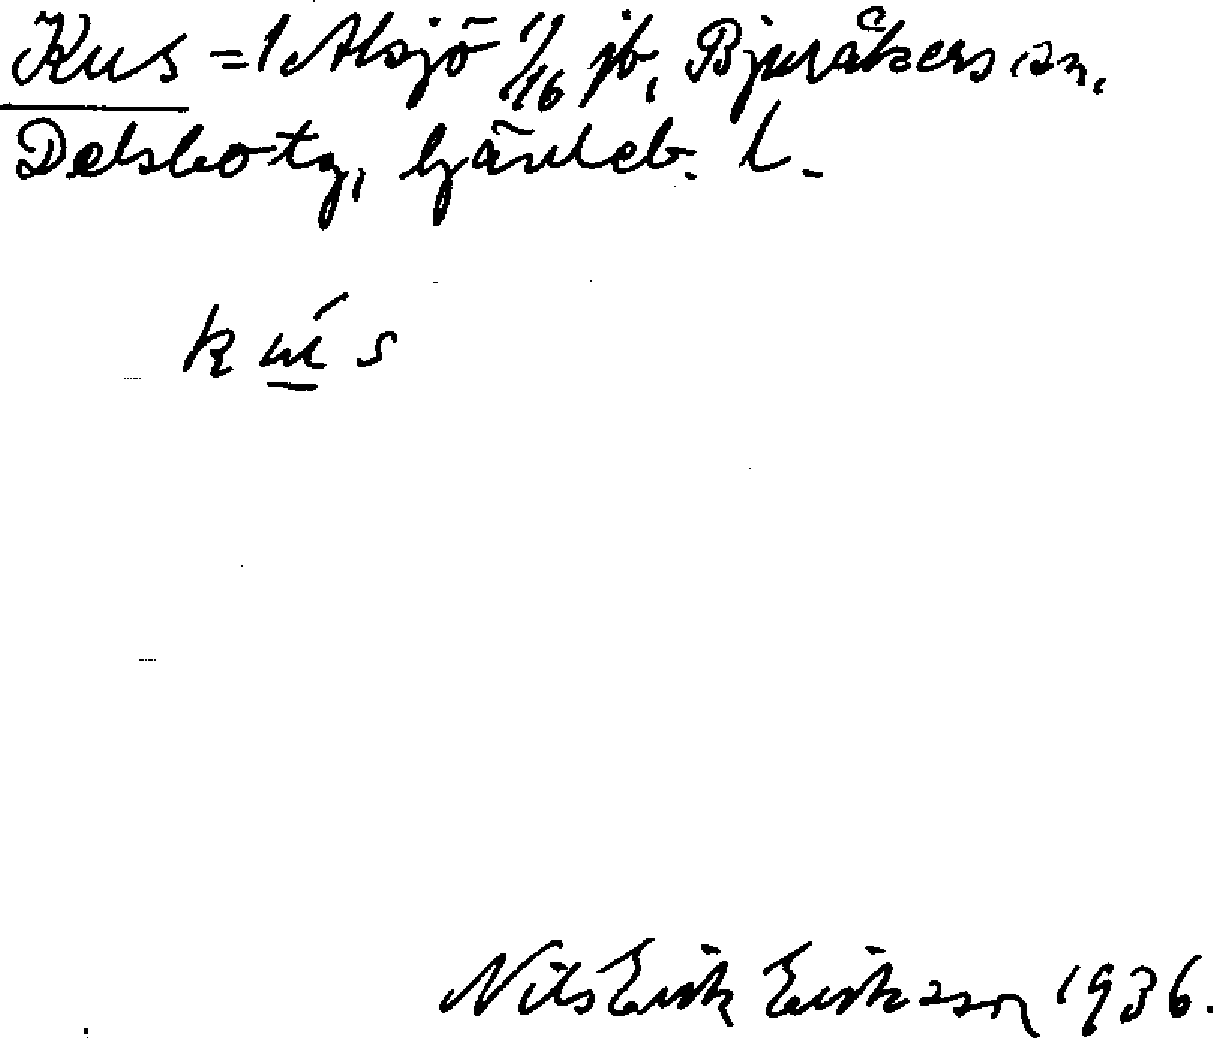 Kus = 1 Alsjö 1/16 jb, Bjuråkers sn,
Delsbo tg, Gävleb. l.
kús
Nils Erik Eriksson 1936.